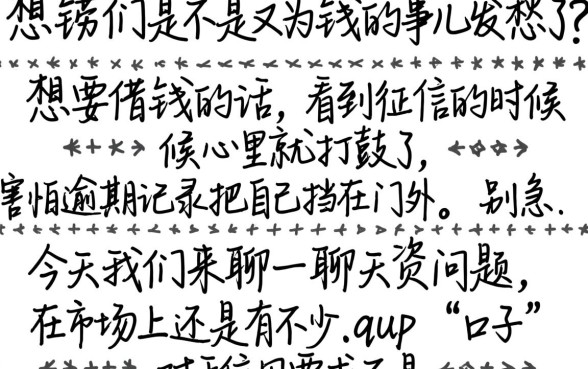 想锛们是不是又为钱的事儿发愁了?
想要借钱的话，看到征信的时候
候心里就打鼓了，
害怕逾期记录把自己挡在门外。别急.
今天我们来聊一聊天资问题，
在市场上还是有不少.qup“口子”